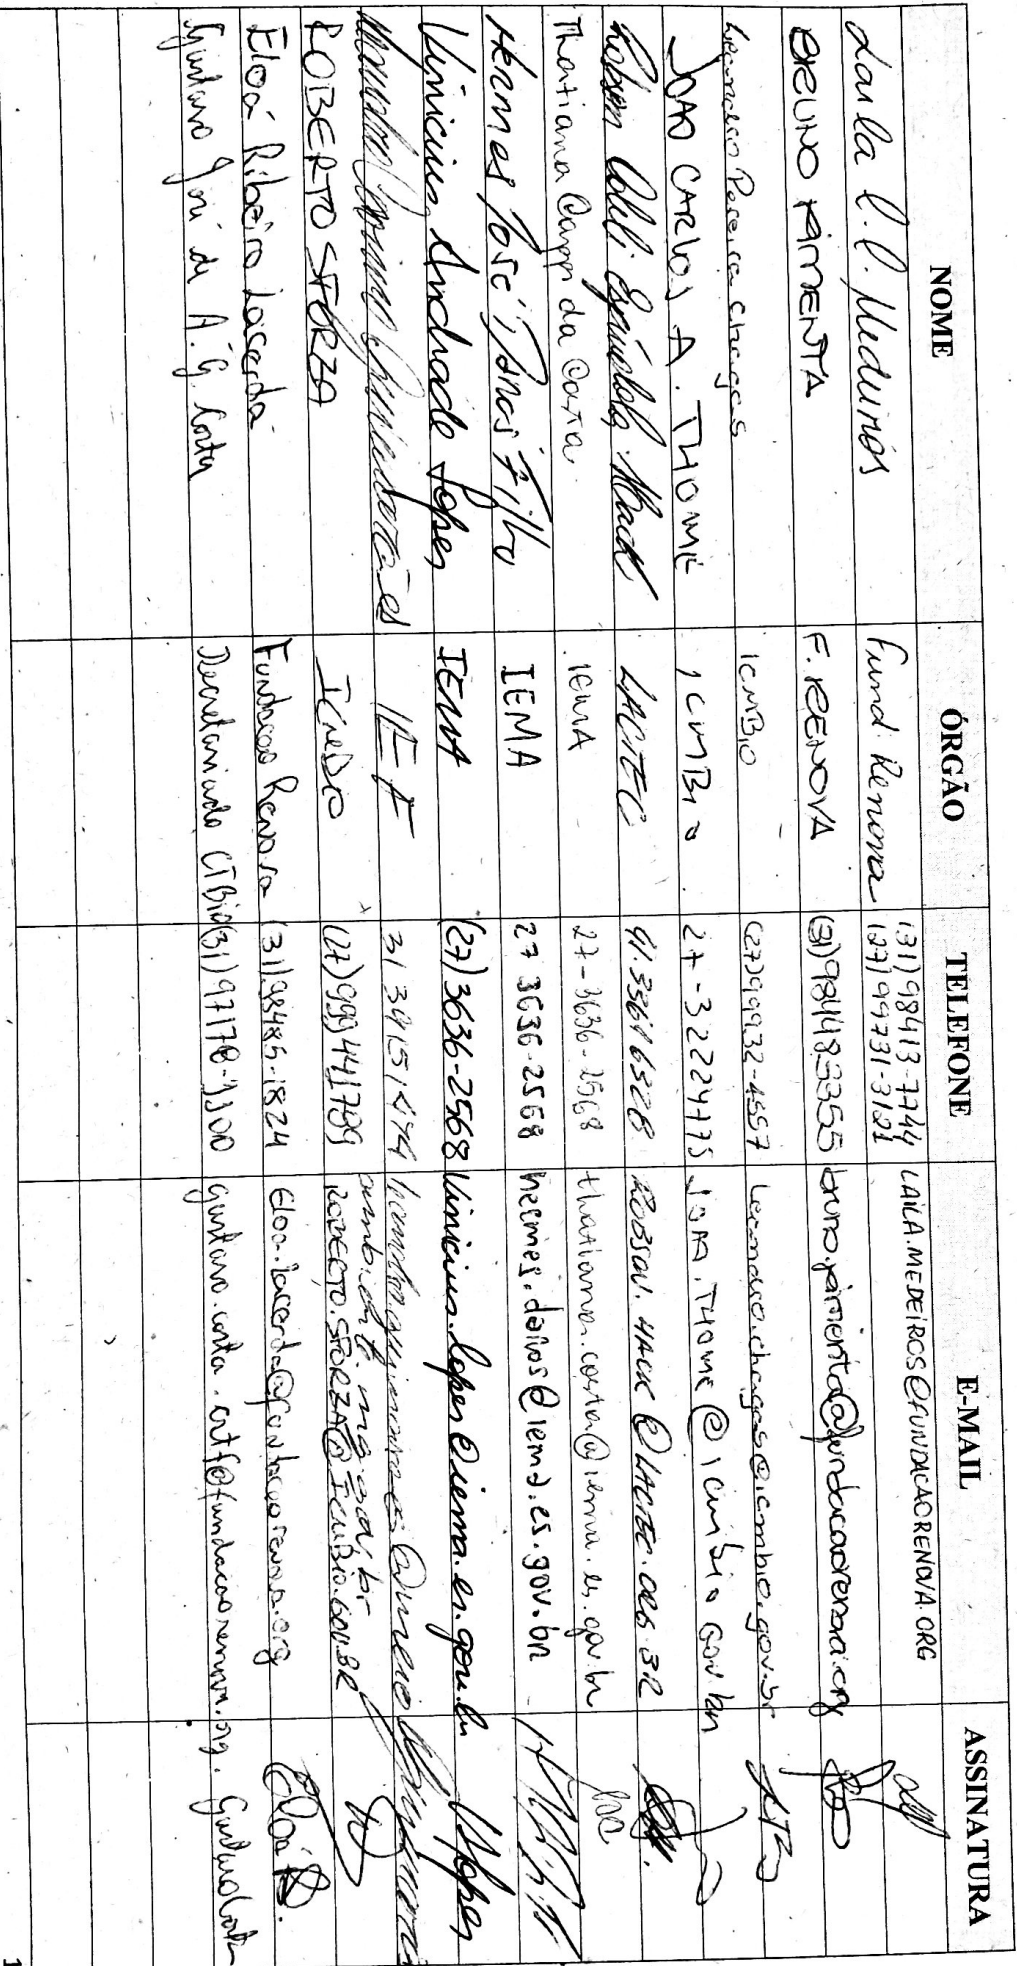 NOME ÓRGÃO TELEFONE E-MAIL ASSINATURA
Laila Medeiros Fund. Renova (31)98413-7744 (27)99731-3121 LAILA.MEDEIROS@FUNDACAORENOVA.ORG
BRUNO PIMENTA F. RENOVA (31)984483355 bruno.pimenta@fundacaorenova.org
Leonardo Pereira Chagas ICMBio (27)99932-4557 leonardo.chagas@icmbio.gov.br
JOAO CARLOS A. THOMÉ ICMBio 27-32224775 JOAO.THOME@icmbio.gov.br
Robson Hack LACTEC 41.33616328 ROBSON.HACK@LACTEC.ORG.BR
Thatiana da Costa IEMA 27-3636-2568 thatiana.costa@iema.es.gov.br
Hermes José Filho IEMA 27 3636-2568 hermes.daros@iema.es.gov.br
Vinicius Andrade Lopes IEMA (27)3636-2568 vinicius.lopes@iema.es.gov.br VLopes
Guimarães IEF 31 39151474 @meio
ambiente.mg.gov.br
ROBERTO SFORZA ICMBio (27)999441789 ROBERTO.SFORZA@ICMBio.GOV.BR
Eloá Ribeiro Lacerda Fundação Renova (31)98485-1824 Eloa.lacerda@fundacaorenova.org Eloá
Gustavo José de A. G. Costa Secretariado CTBio (31)97178- gustavo.costa. @fundacaorenova.org. Gustavo Costa
1